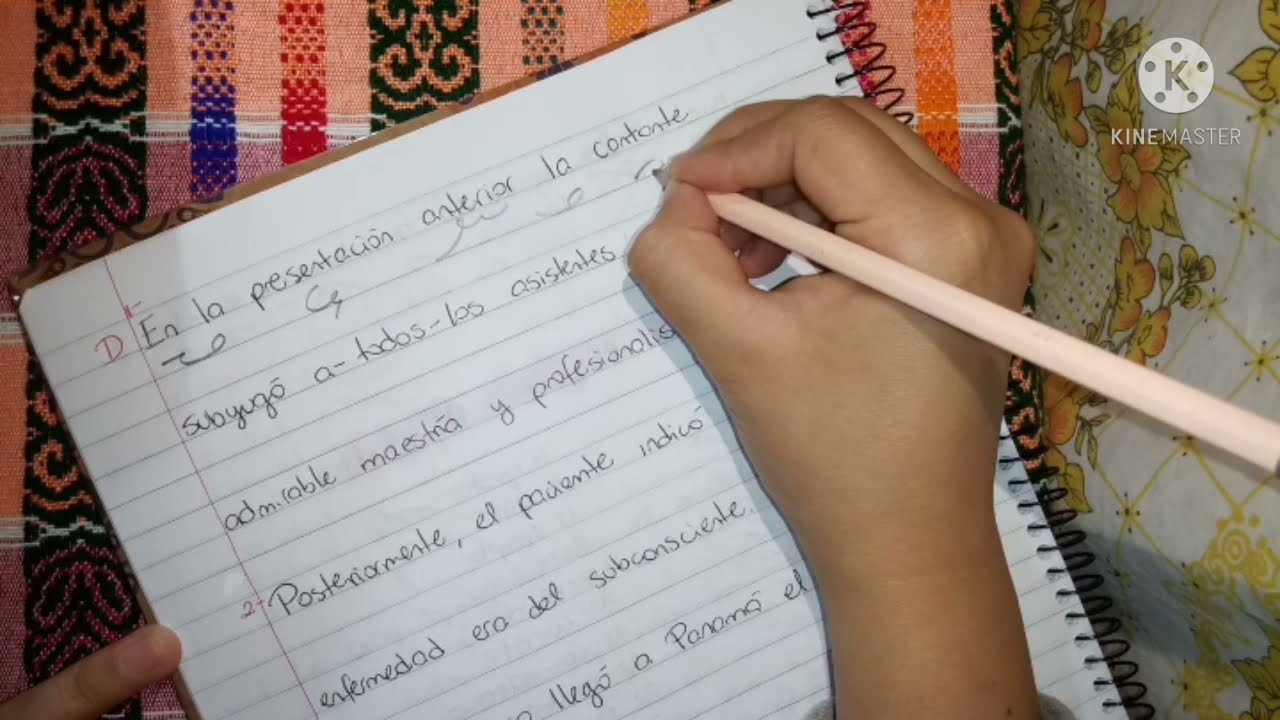 D 1- En la presentación anterior la cantante
subyugó a-todos-los asistentes
admirable maestría y profesionalis
2- Posteriormente, el paciente indicó
enfermedad era del subconsciente.
llegó a Panamá el
K
KINEMASTER